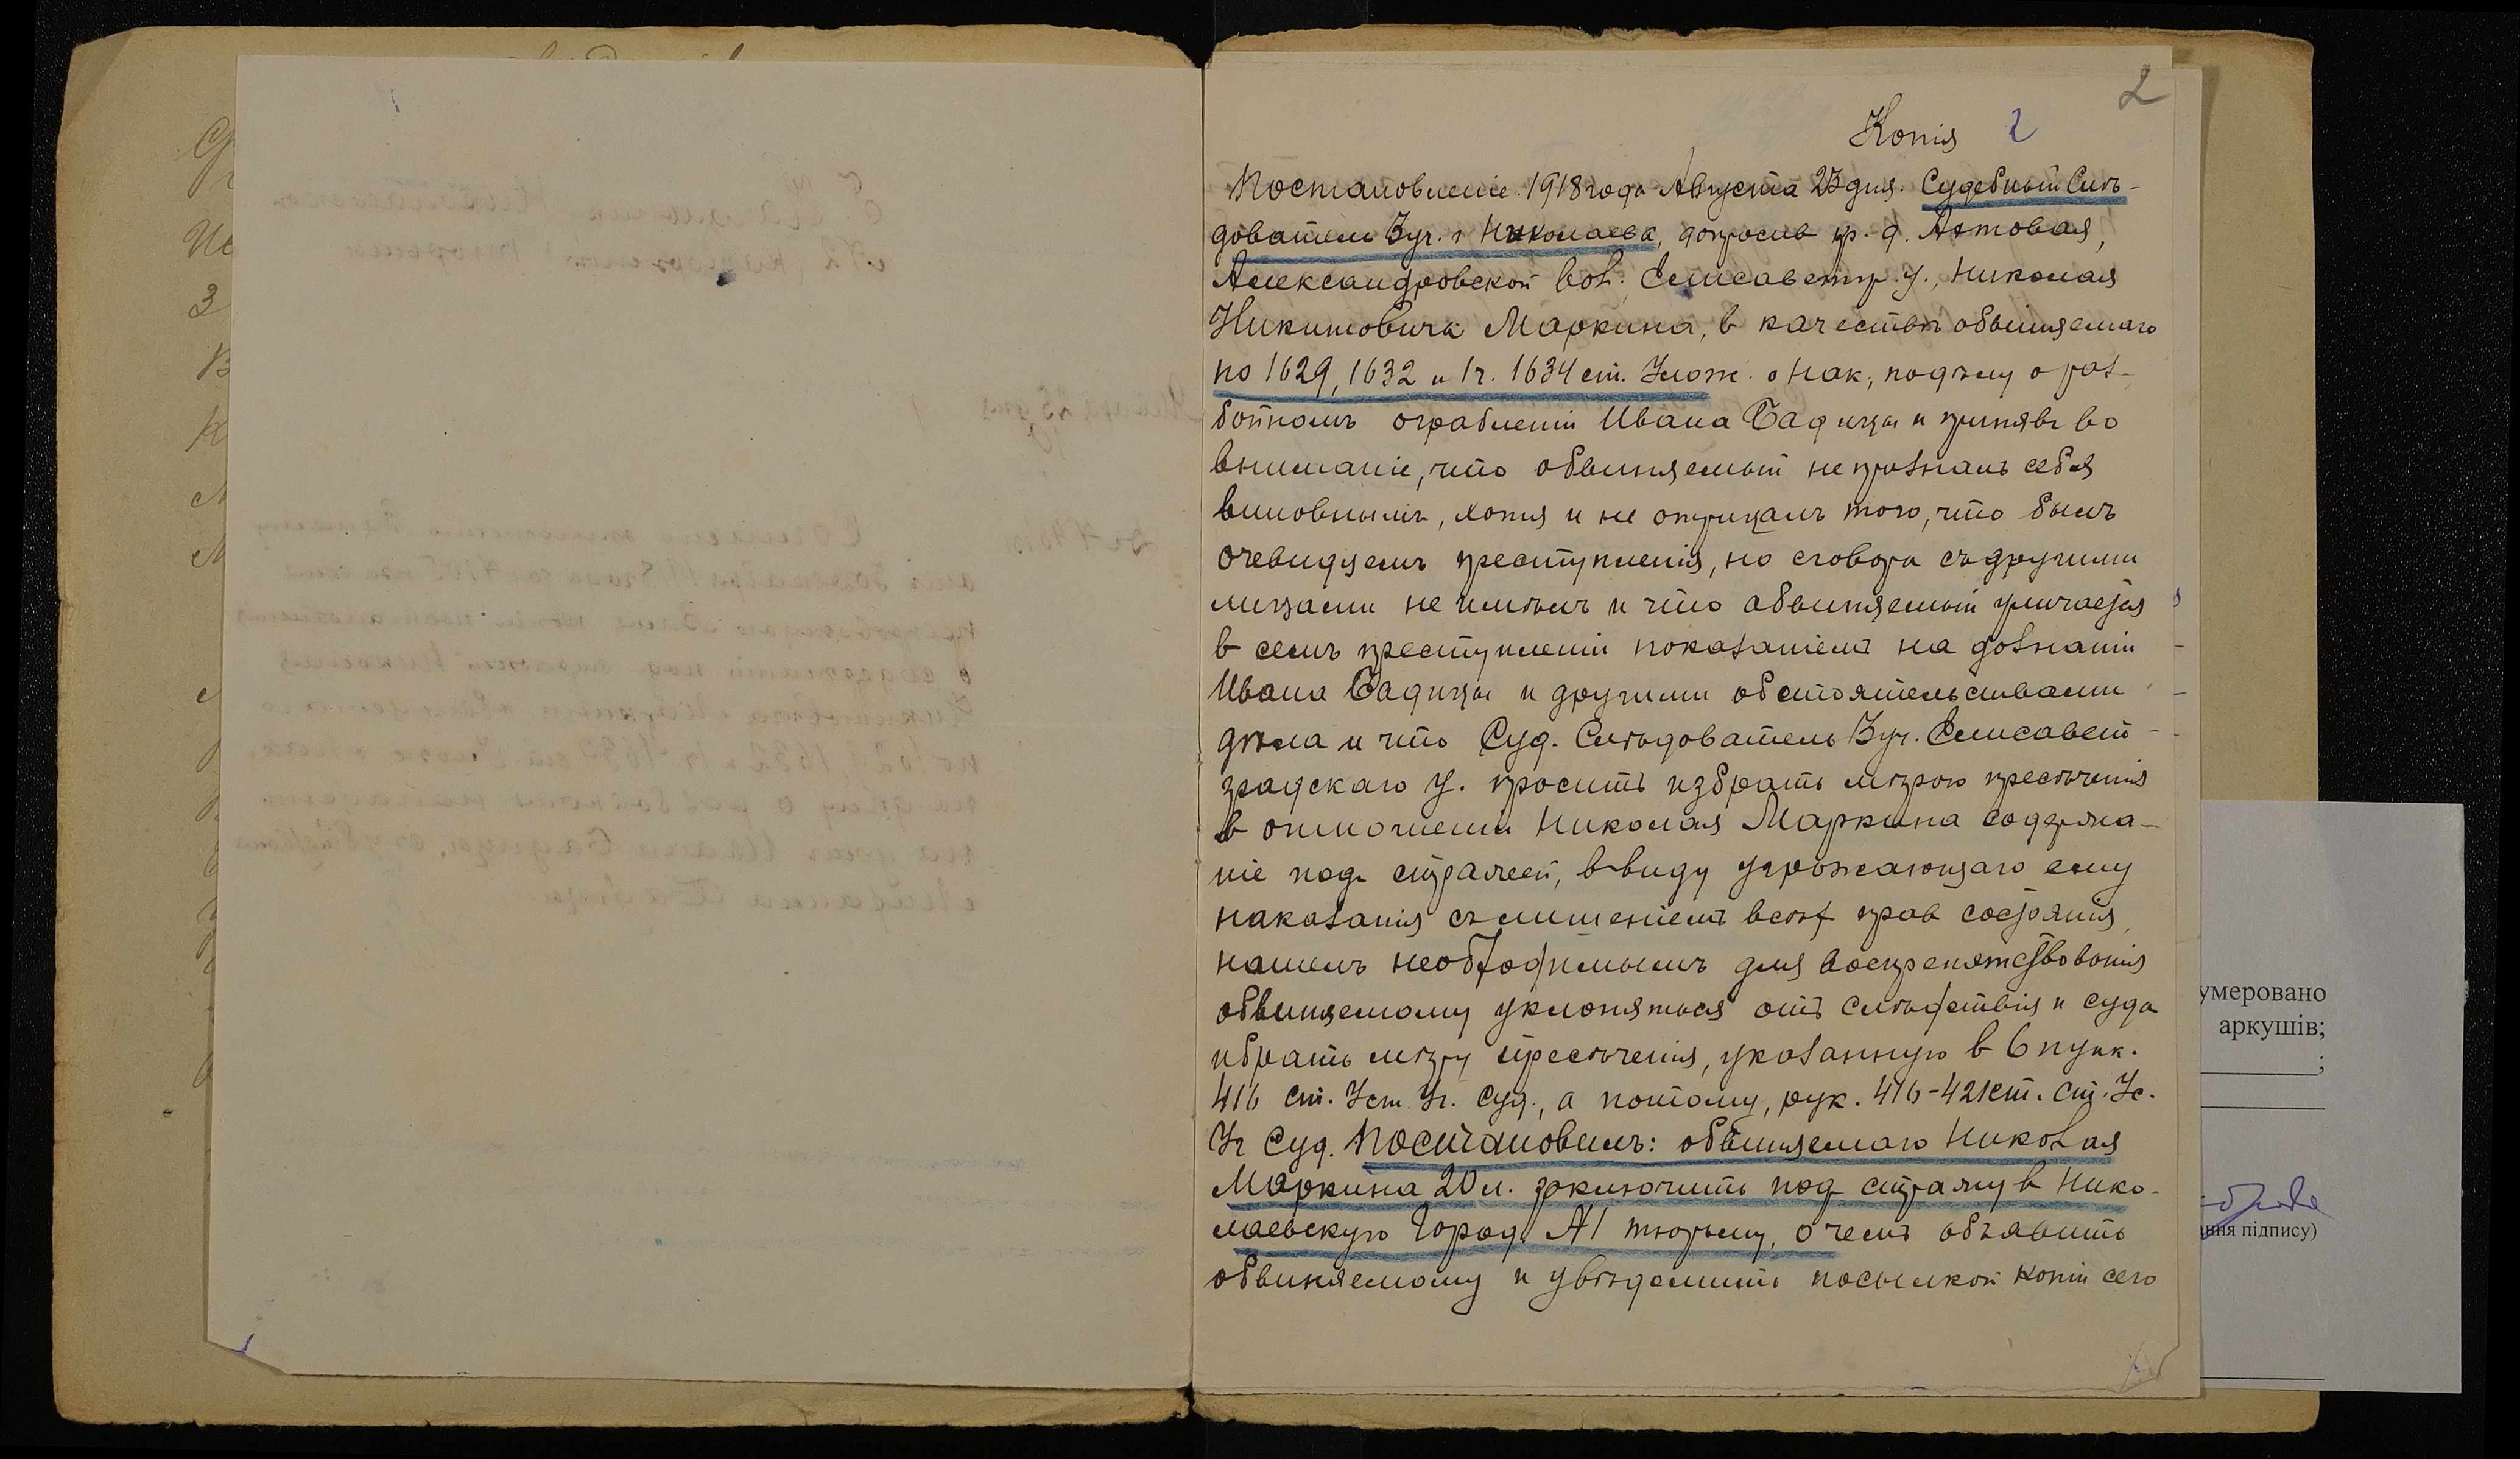 2
Копія 2
Постановленіе. 1918 года Августа 23 дня. Судебный Слѣ-
дователь 3 уч. г. Николаева, допросив кр. д. Актовая,
Александровской вол. Елисаветгр. у., Николая
Никитовича Маркина, в качествѣ обвиняемаго
по 1629, 1632 и 1 ч. 1634 ст. Улож. о Нак., по дѣлу о раз-
бойномъ ограбленіи Ивана Бадицы и принявъ во
вниманіе, что обвиняемый не призналъ себя
виновнымъ, хотя и не отрицалъ того, что былъ
очевидцемъ преступленія, но сговора съ другими
лицами не имѣлъ и что обвиняемый уличается
в семъ преступленіи показаніемъ на дознаніи
Ивана Бадицы и другими обстоятельствами
дѣла и что Суд. Слѣдователь 3 уч. Елисавет-
градскаго у. проситъ избрать мѣрою пресѣченія
в отношеніи Николая Маркина содержа-
ніе под стражей, в виду угрожающаго ему
наказанія съ лишеніемъ всѣх прав состоянія,
нашелъ необходимымъ для воспрепятствованія
обвиняемому уклоняться отъ слѣдствія и суда
избрать мѣру пресѣченія, указанную в 6 пунк.
416 ст. Уст. Уг. Суд., а потому, рук. 416-421 ст. ст. Ус.
Уг Суд. Постановилъ: обвиняемаго Николая
Маркина 20 л. заключить под стражу в Нико-
лаевскую Город. №1 тюрьму, о чемъ объявить
обвиняемому и увѣдомить посылкой копіи сего
умеровано
аркушів;
ння підпису)